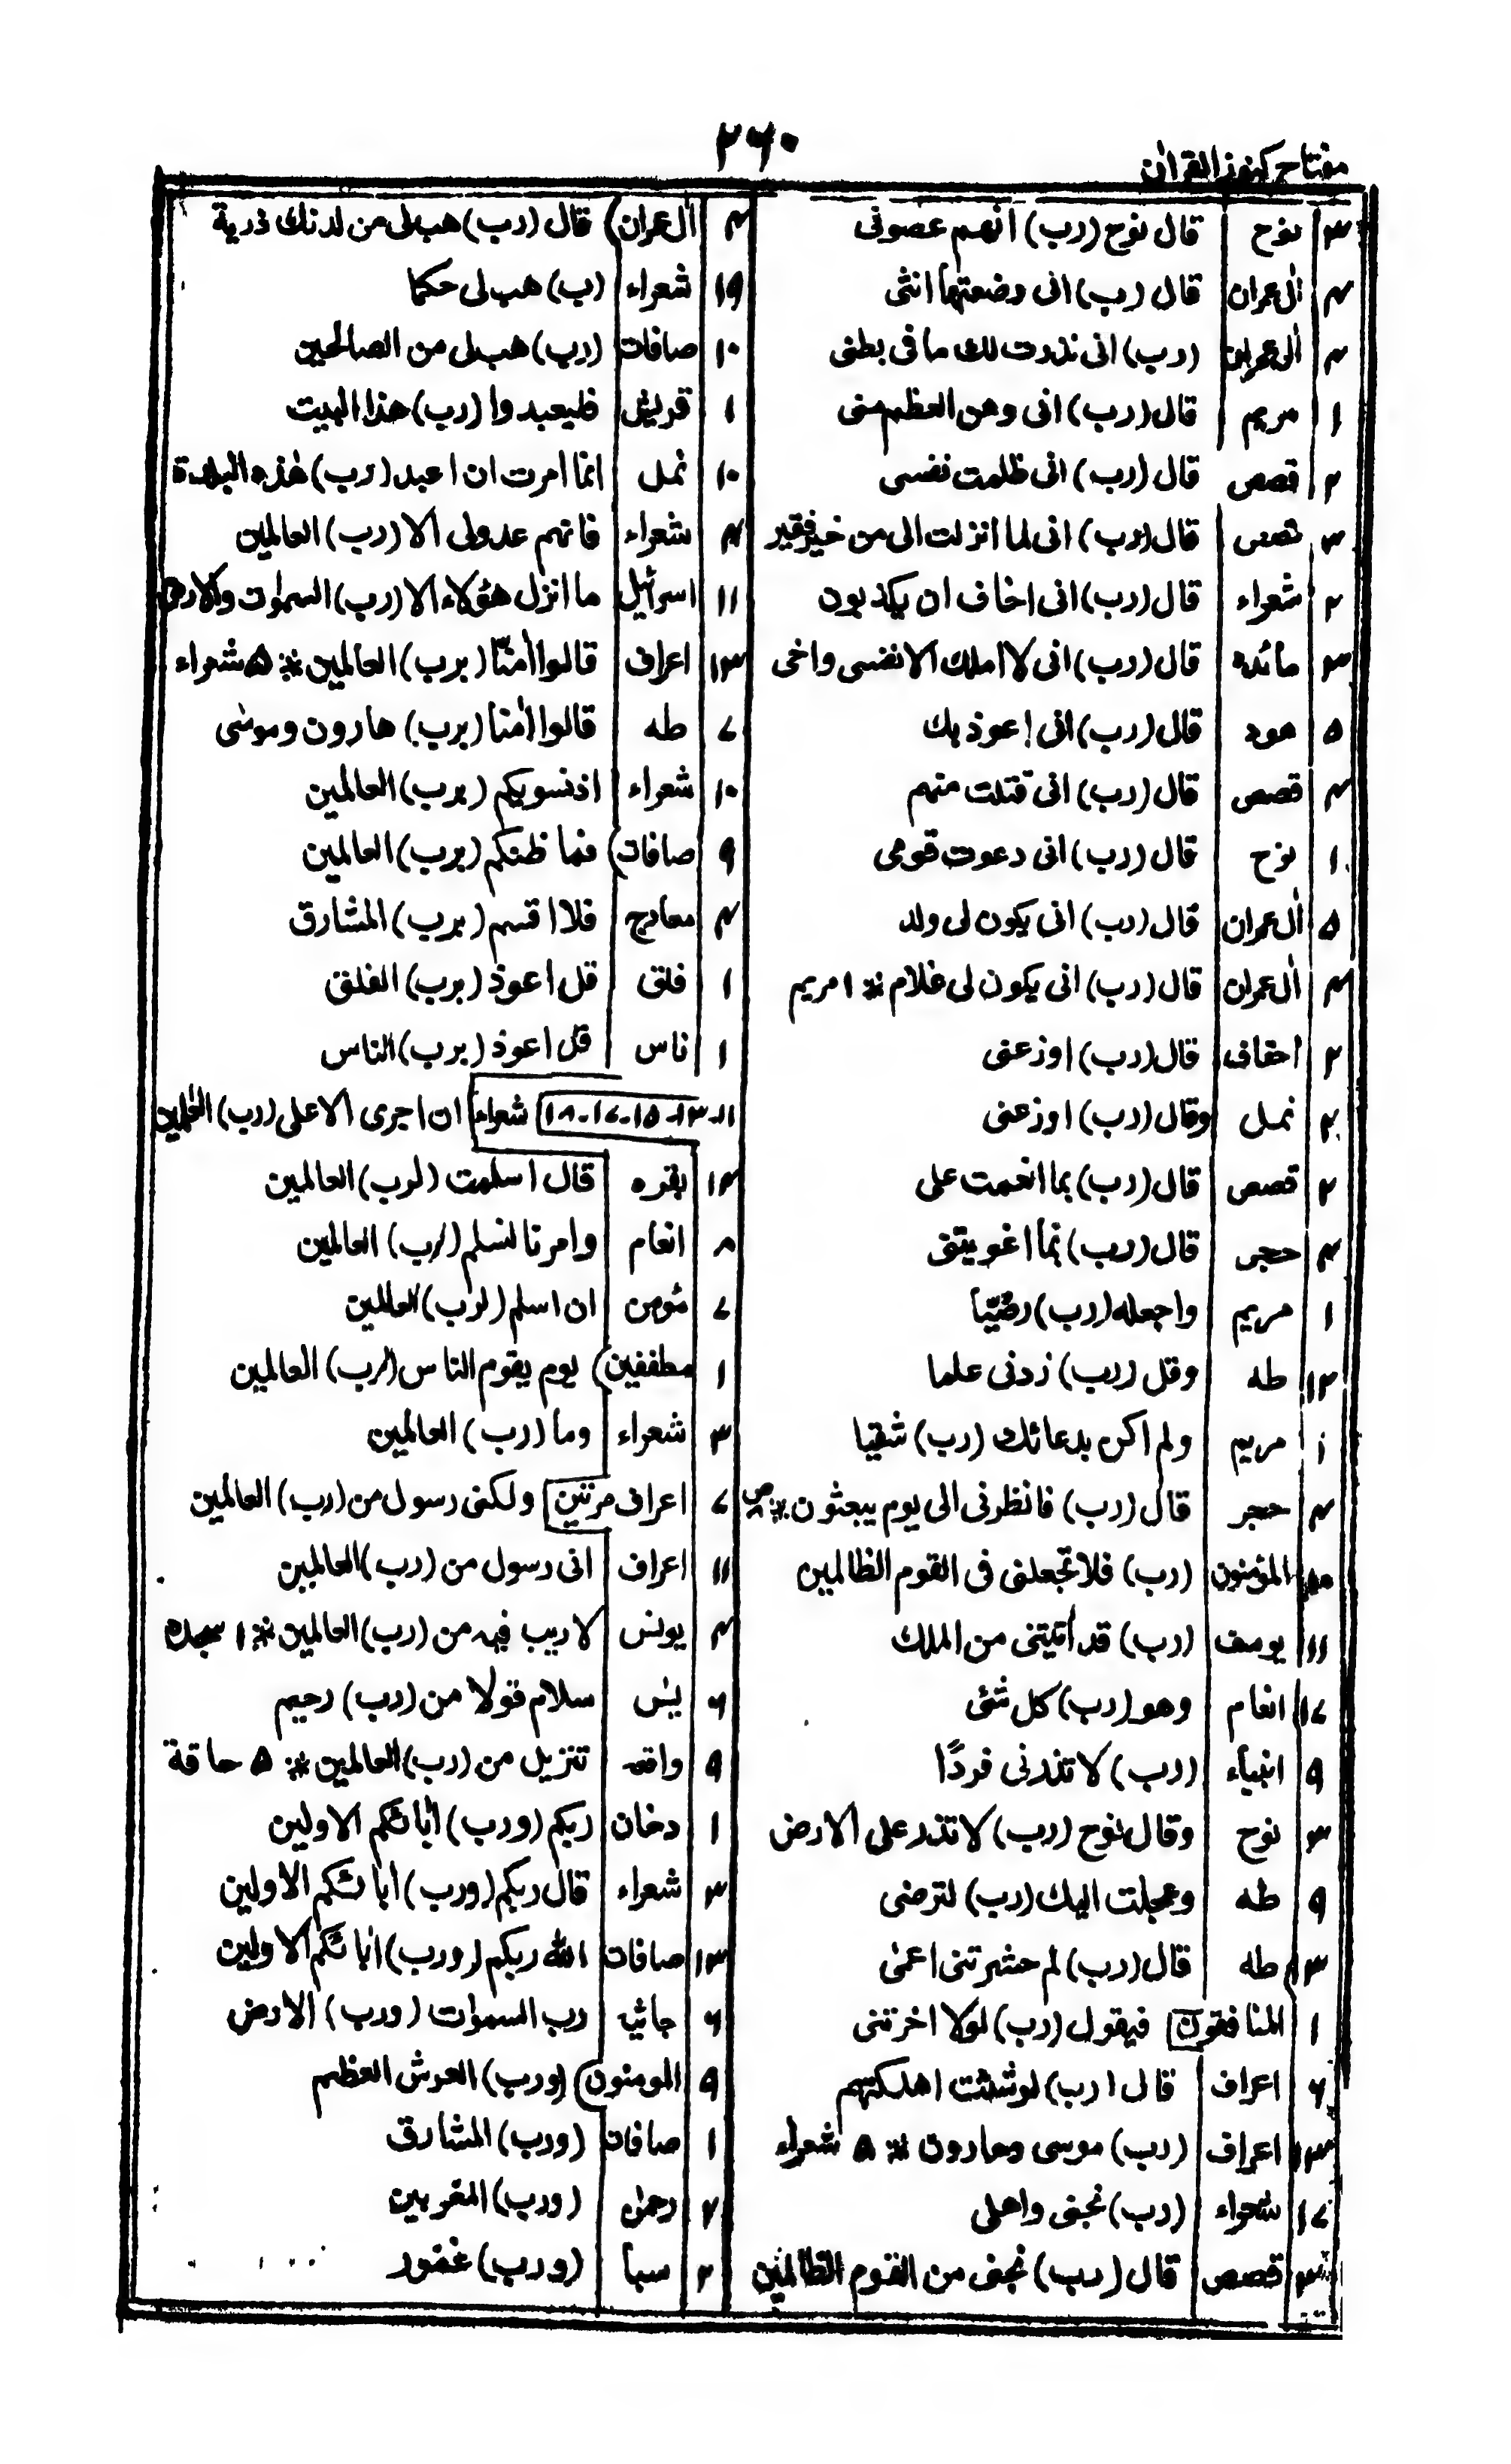 مفتاح کنوز القرآن
۲۶۰
۳ نوح قال نوح (رب) انهم عصونی
۴ اٰل عمران قال (رب) انی وضعتها انثی
۴ اٰل عمران (رب) انی نذرت لك ما فی بطنی
۱ مریم قال (رب) انی وهن العظم منی
۲ قصص قال (رب) انی ظلمت نفسی
۳ قصص قال (رب) انی لما انزلت الی من خیر فقیر
۲ شعراء قال (رب) انی اخاف ان یکذبون
۴ مائده قال (رب) انی لا املك الا نفسی واخی
۵ هود قال (رب) انی اعوذ بك
۴ قصص قال (رب) انی قتلت منهم
۱ نوح قال (رب) انی دعوت قومی
۵ اٰل عمران قال (رب) انی یکون لی ولد
۴ اٰل عمران قال (رب) انی یکون لی غلام * ۱ مریم
۲ احقاف قال (رب) اوزعنی
۲ نمل وقال (رب) اوزعنی
۲ قصص قال (رب) بما انعمت علی
۳ حجر قال (رب) بما اغویتنی
۱ مریم واجعله (رب) رضیّا
۱۲ طه وقل (رب) زدنی علما
۱ مریم ولم اکن بدعائك (رب) شقیا
۳ حجر قال (رب) فانظرنی الی یوم یبعثون * ص
المؤمنون (رب) فلا تجعلنی فی القوم الظالمین
۱۱ یوسف (رب) قد اٰتیتنی من الملك
۱۷ انعام وهو (رب) کل شئ
۹ انبیاء (رب) لا تذرنی فردًا
۳ نوح وقال نوح (رب) لا تذر علی الارض
۹ طه وعجلت الیك (رب) لترضی
۱۳ طه قال (رب) لم حشرتنی اعمٰی
۱ المنافقون فیقول (رب) لولا اخرتنی
۶ اعراف قال (رب) لوشئت اهلکتهم
۱۳ اعراف (رب) موسی وهارون * ۵ شعراء
۱۷ شعراء (رب) نجنی واهلی
قصص قال (رب) نجنی من القوم الظالمین
۴ اٰل عمران قال (رب) هب لی من لدنك ذریة
۱۹ شعراء (رب) هب لی حکما
۱۰ صافات (رب) هب لی من الصالحین
۱ قریش فلیعبدوا (رب) هذا البیت
۱۰ نمل انما امرت ان اعبد (رب) هٰذه البلدة
۴ شعراء فانهم عدولی الا (رب) العالمین
۱۱ اسرائیل ما انزل هؤلاء الا (رب) السموات والارض
۱۳ اعراف قالوا اٰمنّا (برب) العالمین * ۵ شعراء
۷ طه قالوا اٰمنا (برب) هارون وموسٰی
۱۰ شعراء اذ نسویکم (برب) العالمین
۹ صافات فما ظنکم (برب) العالمین
۳ معارج فلا اقسم (برب) المشارق
۱ فلق قل اعوذ (برب) الفلق
۱ ناس قل اعوذ (برب) الناس
۱۱-۱۳-۱۵-۱۷-۱۸ شعراء ان اجری الا علی (رب) العٰلمین
۱۴ بقره قال اسلمت (لرب) العالمین
۸ انعام وامرنا لنسلم (لرب) العالمین
۷ مؤمن ان اسلم (لرب) العالمین
۱ مطففین یوم یقوم الناس (لرب) العالمین
۳ شعراء وما (رب) العالمین
۷ اعراف مرتین ولکنی رسول من (رب) العالمین
۱۱ اعراف انی رسول من (رب) العالمین
۴ یونس لا ریب فیه من (رب) العالمین * ۱ سجده
۶ یٰس سلام قولا من (رب) رحیم
۹ واقعه تنزیل من (رب) العالمین * ۵ حاقة
۱ دخان ربکم (ورب) اٰبائکم الاولین
۳ شعراء قال ربکم (ورب) اٰبائکم الاولین
۱۳ صافات الله ربکم (ورب) اٰبائکم الاولین
۶ جاثیه رب السموات (ورب) الارض
۹ المومنون (ورب) العرش العظیم
۱ صافات (ورب) المشارق
۲ رحمٰن (ورب) المغربین
۲ سبا (ورب) غفور